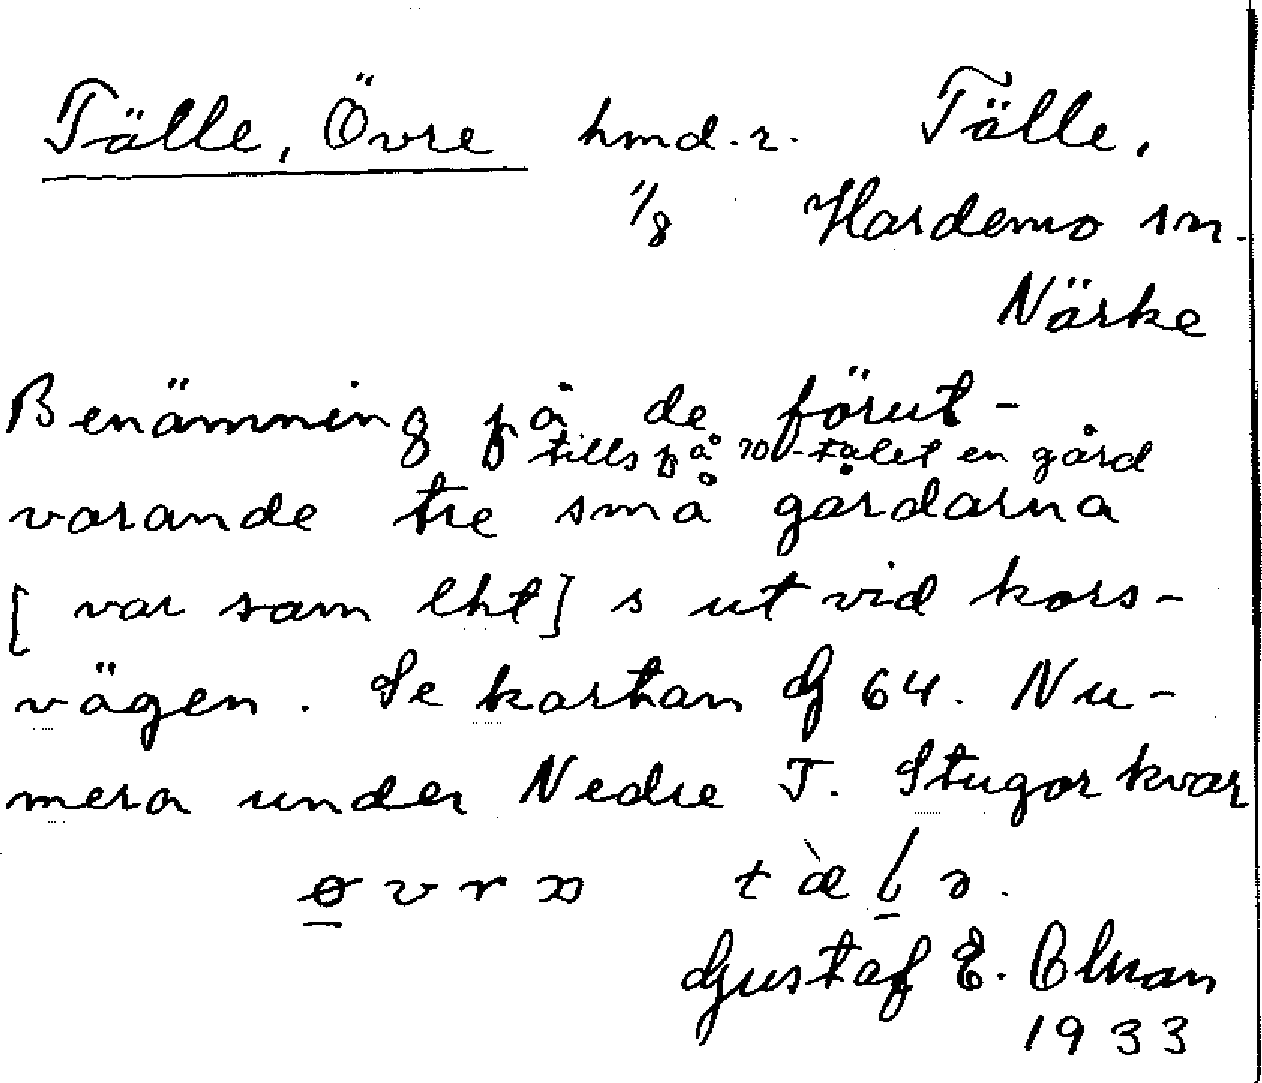 Tälle, Övre hmd. r. Tälle,
1/8 Hardemo sn.
Närke
Benämning på de förut-
tills på 70-talet en gård
varande tre små gårdarna
[var sam lht] s ut vid kors-
vägen. Se kartan G 64. Nu-
mera under Nedre T. Stugor kvar
t
Gustaf E. Olsson
1933